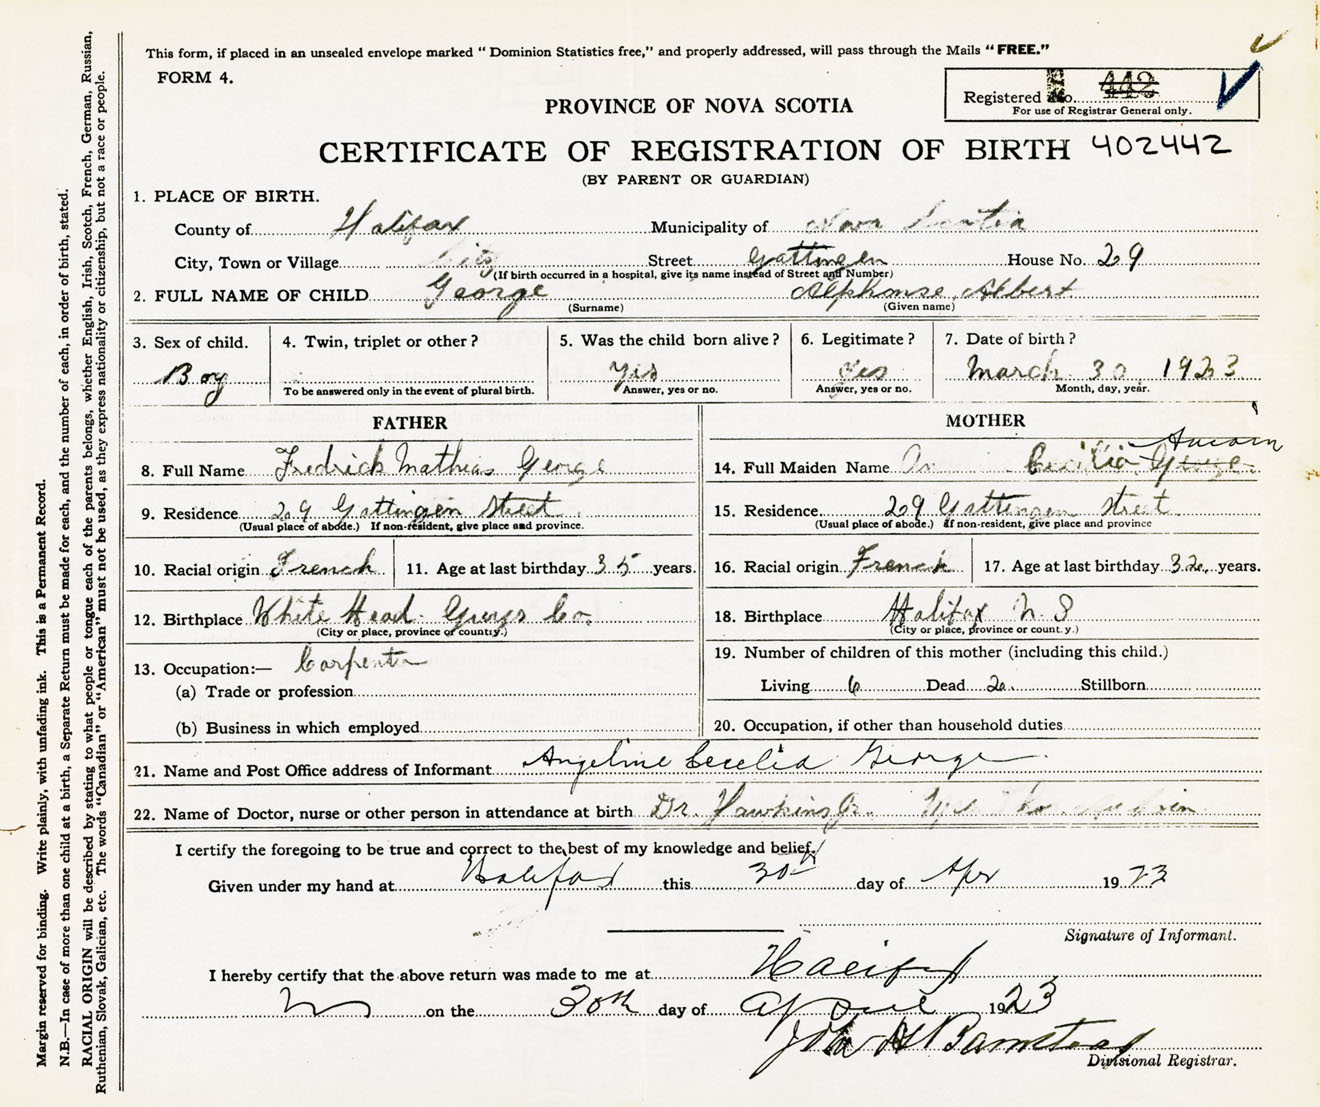 This form, if placed in an unsealed envelope marked "Dominion Statistics free," and properly addressed, will pass through the Mails "FREE."
FORM 4.
Registered No. 442
For use of Registrar General only.
PROVINCE OF NOVA SCOTIA
CERTIFICATE OF REGISTRATION OF BIRTH 402442
(BY PARENT OR GUARDIAN)
1. PLACE OF BIRTH.
County of Halifax Municipality of Nova Scotia
City, Town or Village City Street Gottingen House No. 29
(If birth occurred in a hospital, give its name instead of Street and Number)
2. FULL NAME OF CHILD George Alphonse Albert
(Surname) (Given name)
3. Sex of child. 4. Twin, triplet or other? 5. Was the child born alive? 6. Legitimate? 7. Date of birth?
Boy Yes Yes March 30 1923
To be answered only in the event of plural birth. Answer, yes or no. Answer, yes or no. Month, day, year.
FATHER MOTHER
8. Full Name Fredrick Mathias George 14. Full Maiden Name Cecilia George
9. Residence 29 Gottingen Street 15. Residence 29 Gottengen Street
(Usual place of abode.) If non-resident, give place and province. (Usual place of abode.) If non-resident, give place and province
10. Racial origin French 11. Age at last birthday 35 years. 16. Racial origin French 17. Age at last birthday 32 years.
12. Birthplace White Head Guys Co. 18. Birthplace Halifax N.S
(City or place, province or country.) (City or place, province or count.y.)
13. Occupation:— Carpenter 19. Number of children of this mother (including this child.)
(a) Trade or profession Living 6 Dead 2 Stillborn
(b) Business in which employed 20. Occupation, if other than household duties
21. Name and Post Office address of Informant Angeline Cecelia George
22. Name of Doctor, nurse or other person in attendance at birth Dr. Hawkins Jr.
I certify the foregoing to be true and correct to the best of my knowledge and belief.
Given under my hand at Halifax this 30th day of Apr 1923
Signature of Informant.
I hereby certify that the above return was made to me at Halifax
on the 30th day of April 1923
Divisional Registrar.
Margin reserved for binding. Write plainly, with unfading ink. This is a Permanent Record.
N.B.—In case of more than one child at a birth, a Separate Return must be made for each, and the number of each, in order of birth, stated.
RACIAL ORIGIN will be described by stating to what people or tongue each of the parents belongs, whether English, Irish, Scotch, French, German, Russian,
Ruthenian, Slovak, Galician, etc. The words "Canadian" or "American" must not be used, as they express nationality or citizenship, but not a race or people.